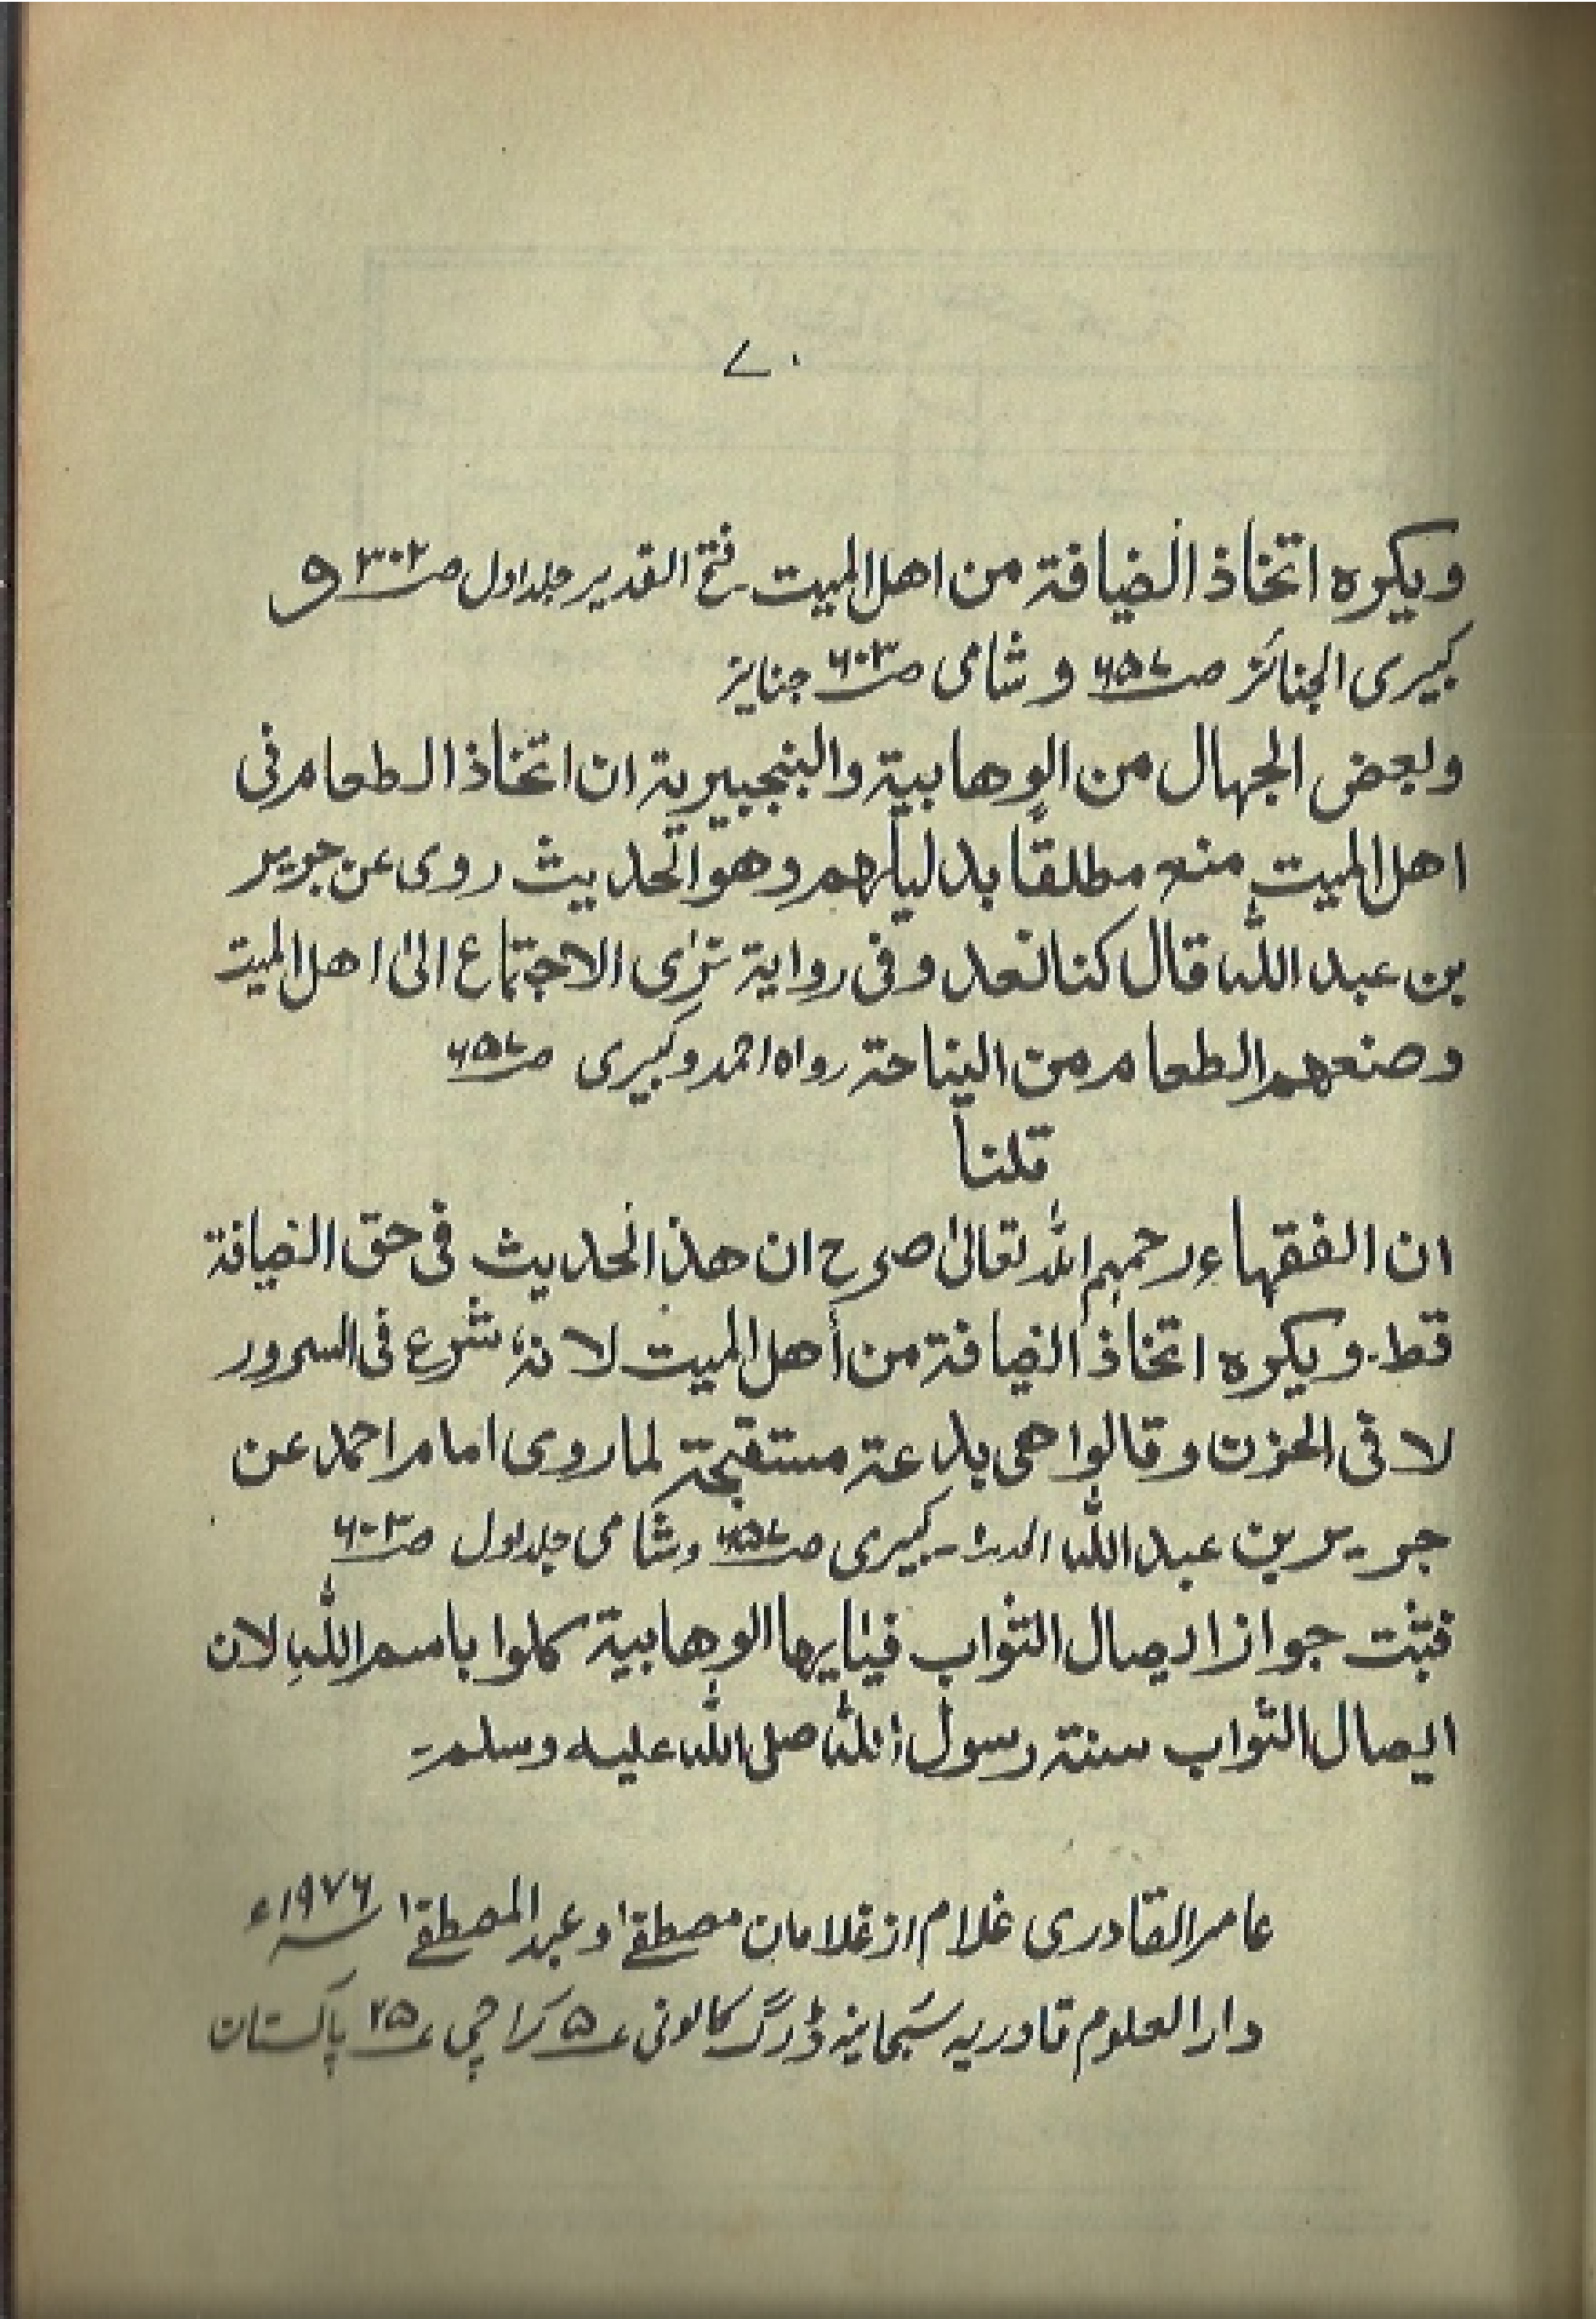 ۷۰
ویکرہ اتخاذ الضیافة من اهل المیت۔ فتح القدیر جلد اول صـ۳۰۲ و
کبیری الجنائز صـ۶۵۷ و شامی صـ۶۰۳ جنایز
وبعض الجهال من الوهابیة والبنجبیریة ان اتخاذ الطعام فی
اهل المیت منع مطلقاً بدلیلهم وهو الحدیث روی عن جریر
بن عبد اللہ قال کنا نعد وفی روایة نرٰی الاجتماع الیٰ اهل المیت
وصنعهم الطعام من الیناحة رواہ احمد وکبیری صـ۶۵۷
قلنا
ان الفقهاء رحمهم اللہ تعالیٰ صرح ان هذا الحدیث فی حق الضیافة
قط۔ ویکرہ اتخاذ الضیافة من أهل المیت لانهٗ شرع فی السرور
لا فی الحزن وقالوا هی بدعة مستقبحة لما روی امام احمد عن
جریر بن عبد اللہ۔ کبیری صـ۶۵۷ و شامی جلد اول صـ۶۰۳
فثبت جواز ایصال الثواب فیاایها الوهابیة کلوا باسم اللہ لان
ایصال الثواب سنة رسول اللہ صلی اللہ علیه وسلم۔
عامر القادری غلام از غلامان مصطفےٰ و عبد المصطفےٰ سـ۱۹۷۶ء
دار العلوم قادریہ سُبحانیہ ڈرگ کالونی عـ۵ کراچی عـ۲۵ پاکستان